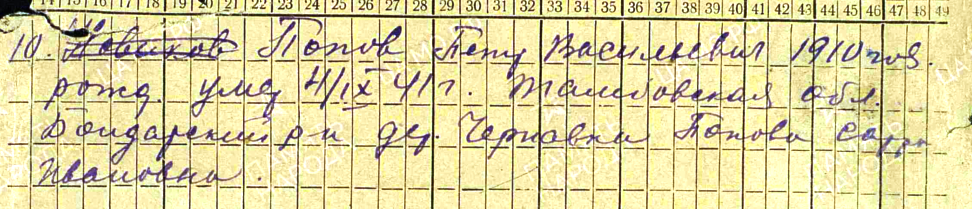 14 15 16 17 18 19 20 21 22 23 24 25 26 27 28 29 30 31 32 33 34 35 36 37 38 39 40 41 42 43 44 45 46 47 48 49
10. Новиков Попов Петр Васильевич 1910 год.
рожд. умер 4/IX 41 г. Тамбовская обл.
Бондарский р-н дер. Чернавка Попова
Ивановна.